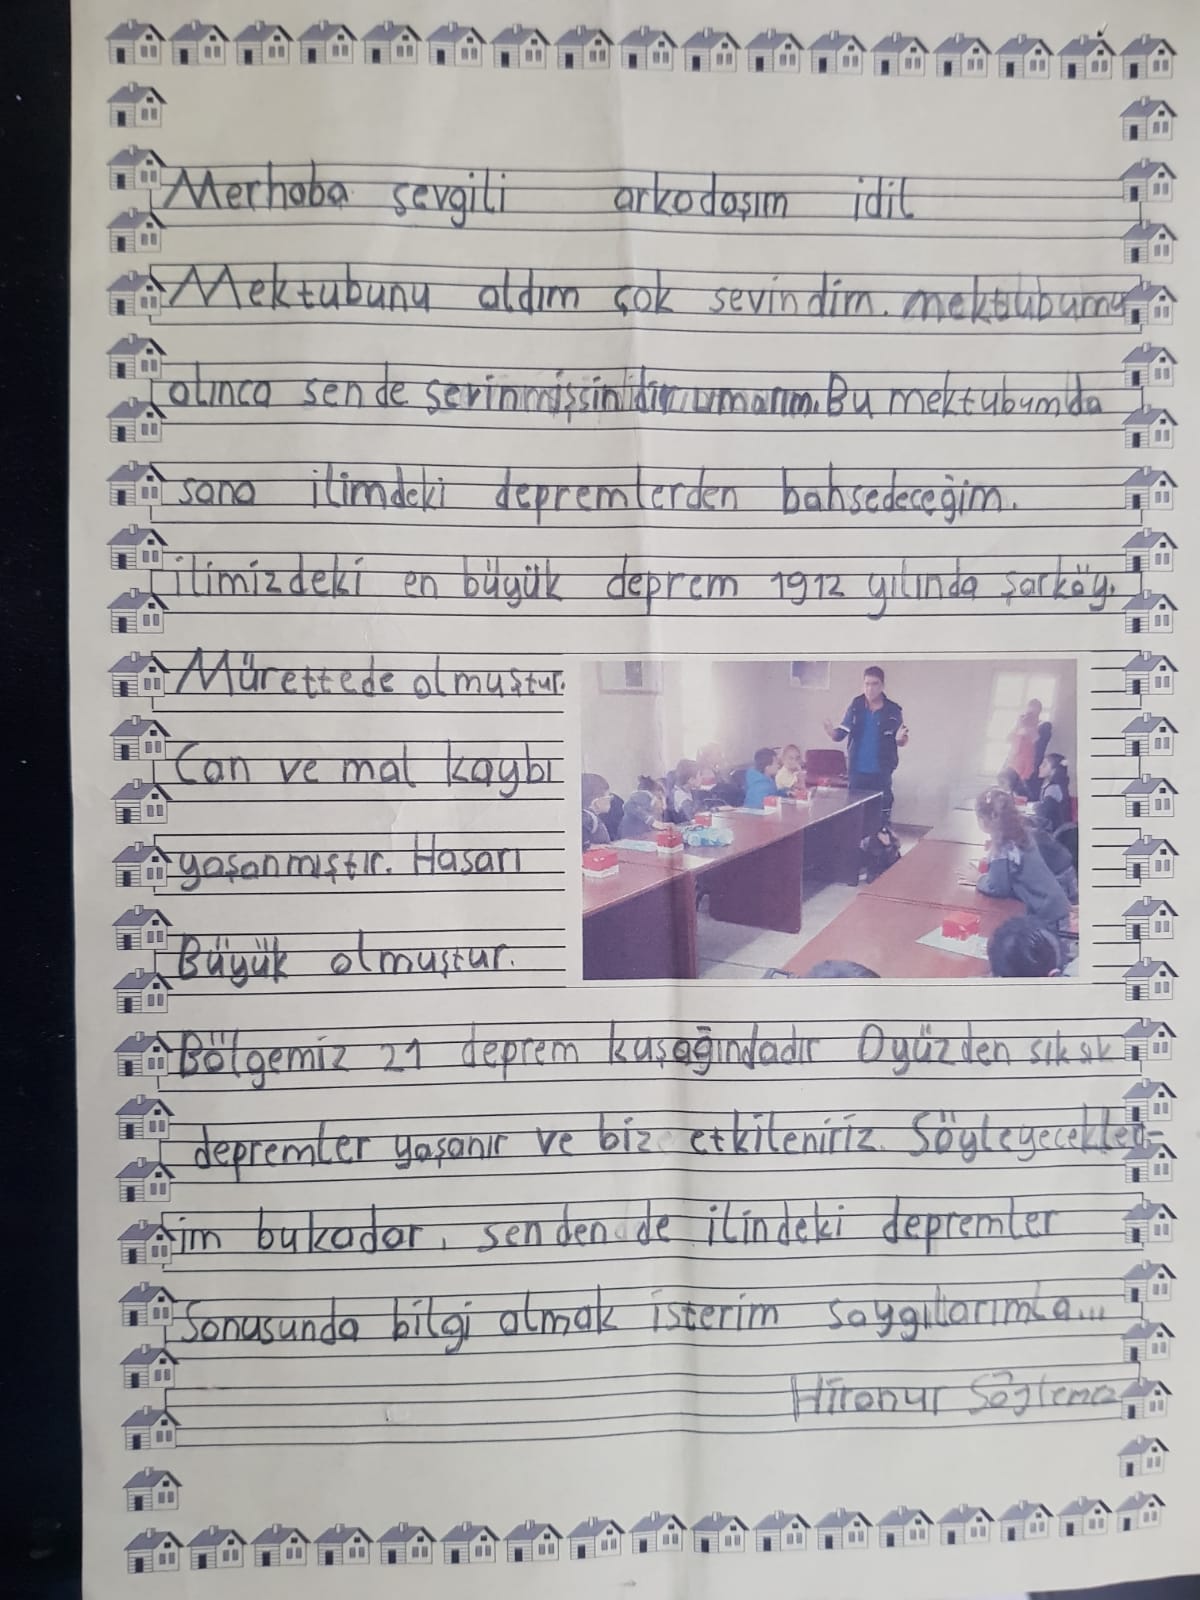 Merhaba sevgili arkadaşım idil
Mektubunu aldım çok sevindim. mektubumu
alınca sen de sevinmişsindir umarım. Bu mektubumda
sana ilimdeki depremlerden bahsedeceğim.
ilimizdeki en büyük deprem 1912 yılında şarköy.
Mürettede olmuştur.
Can ve mal kaybı
yaşanmıştır. Hasarı
Büyük olmuştur.
Bölgemiz 21 deprem kuşağındadır Oyüzden sık sık
depremler yaşanır ve biz etkileniriz. Söyleyecekler-
im bukadar, senden de ilindeki depremler
Sonusunda bilgi almak isterim saygılarımla...
Söylemez